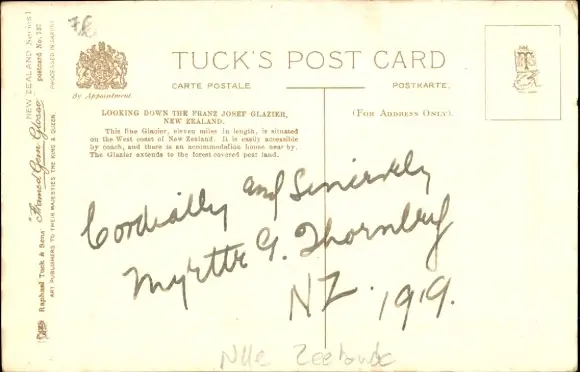 TUCK'S POST CARD
By Appointment
CARTE POSTALE
POSTKARTE.
LOOKING DOWN THE FRANZ JOSEF GLAZIER,
NEW ZEALAND.
This fine Glazier, eleven miles in length, is situated
on the West coast of New Zealand. It is easily accessible
by coach, and there is an accommodation house near by.
The Glazier extends to the forest-covered pest land.
(FOR ADDRESS ONLY).
Cordially and Sincerely
Myrtle G. Thornley
NZ. 1919.
Nlle
Raphael Tuck & Sons' "Framed Gem Glosso"
ART PUBLISHERS TO THEIR MAJESTIES THE KING & QUEEN.
NEW ZEALAND Series I
postcard No.
PROCESSED IN SAXONY